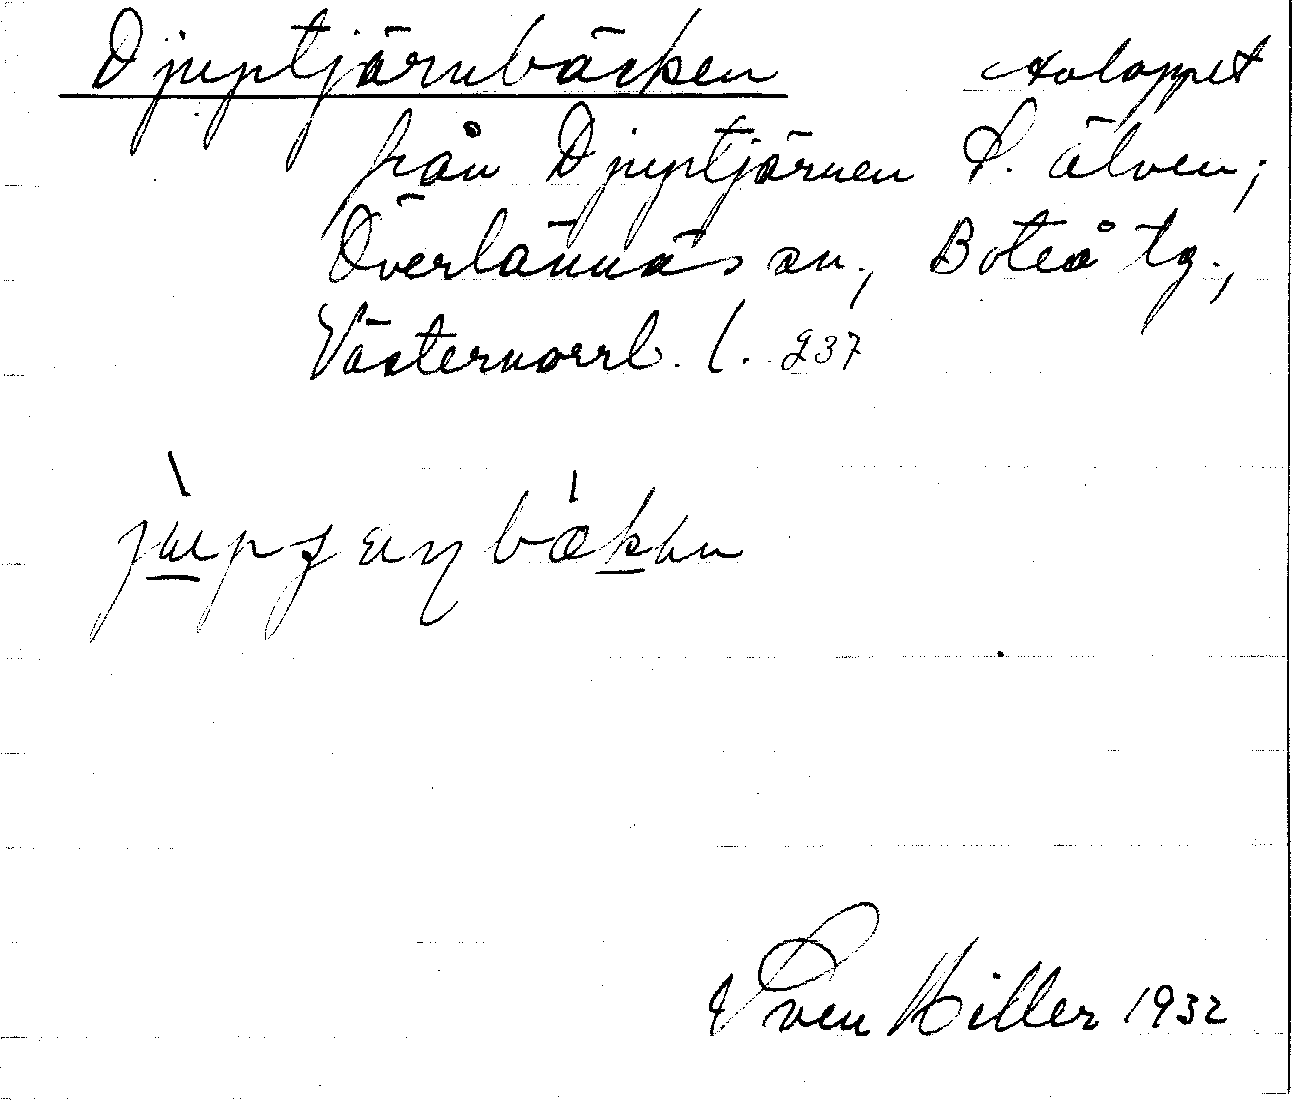 Djuptjärnbäcken avloppet
från Djuptjärnen t. älven;
Överlännäs sn., Boteå tg.,
Västernorrl. l. 237
Sven Hiller 1932